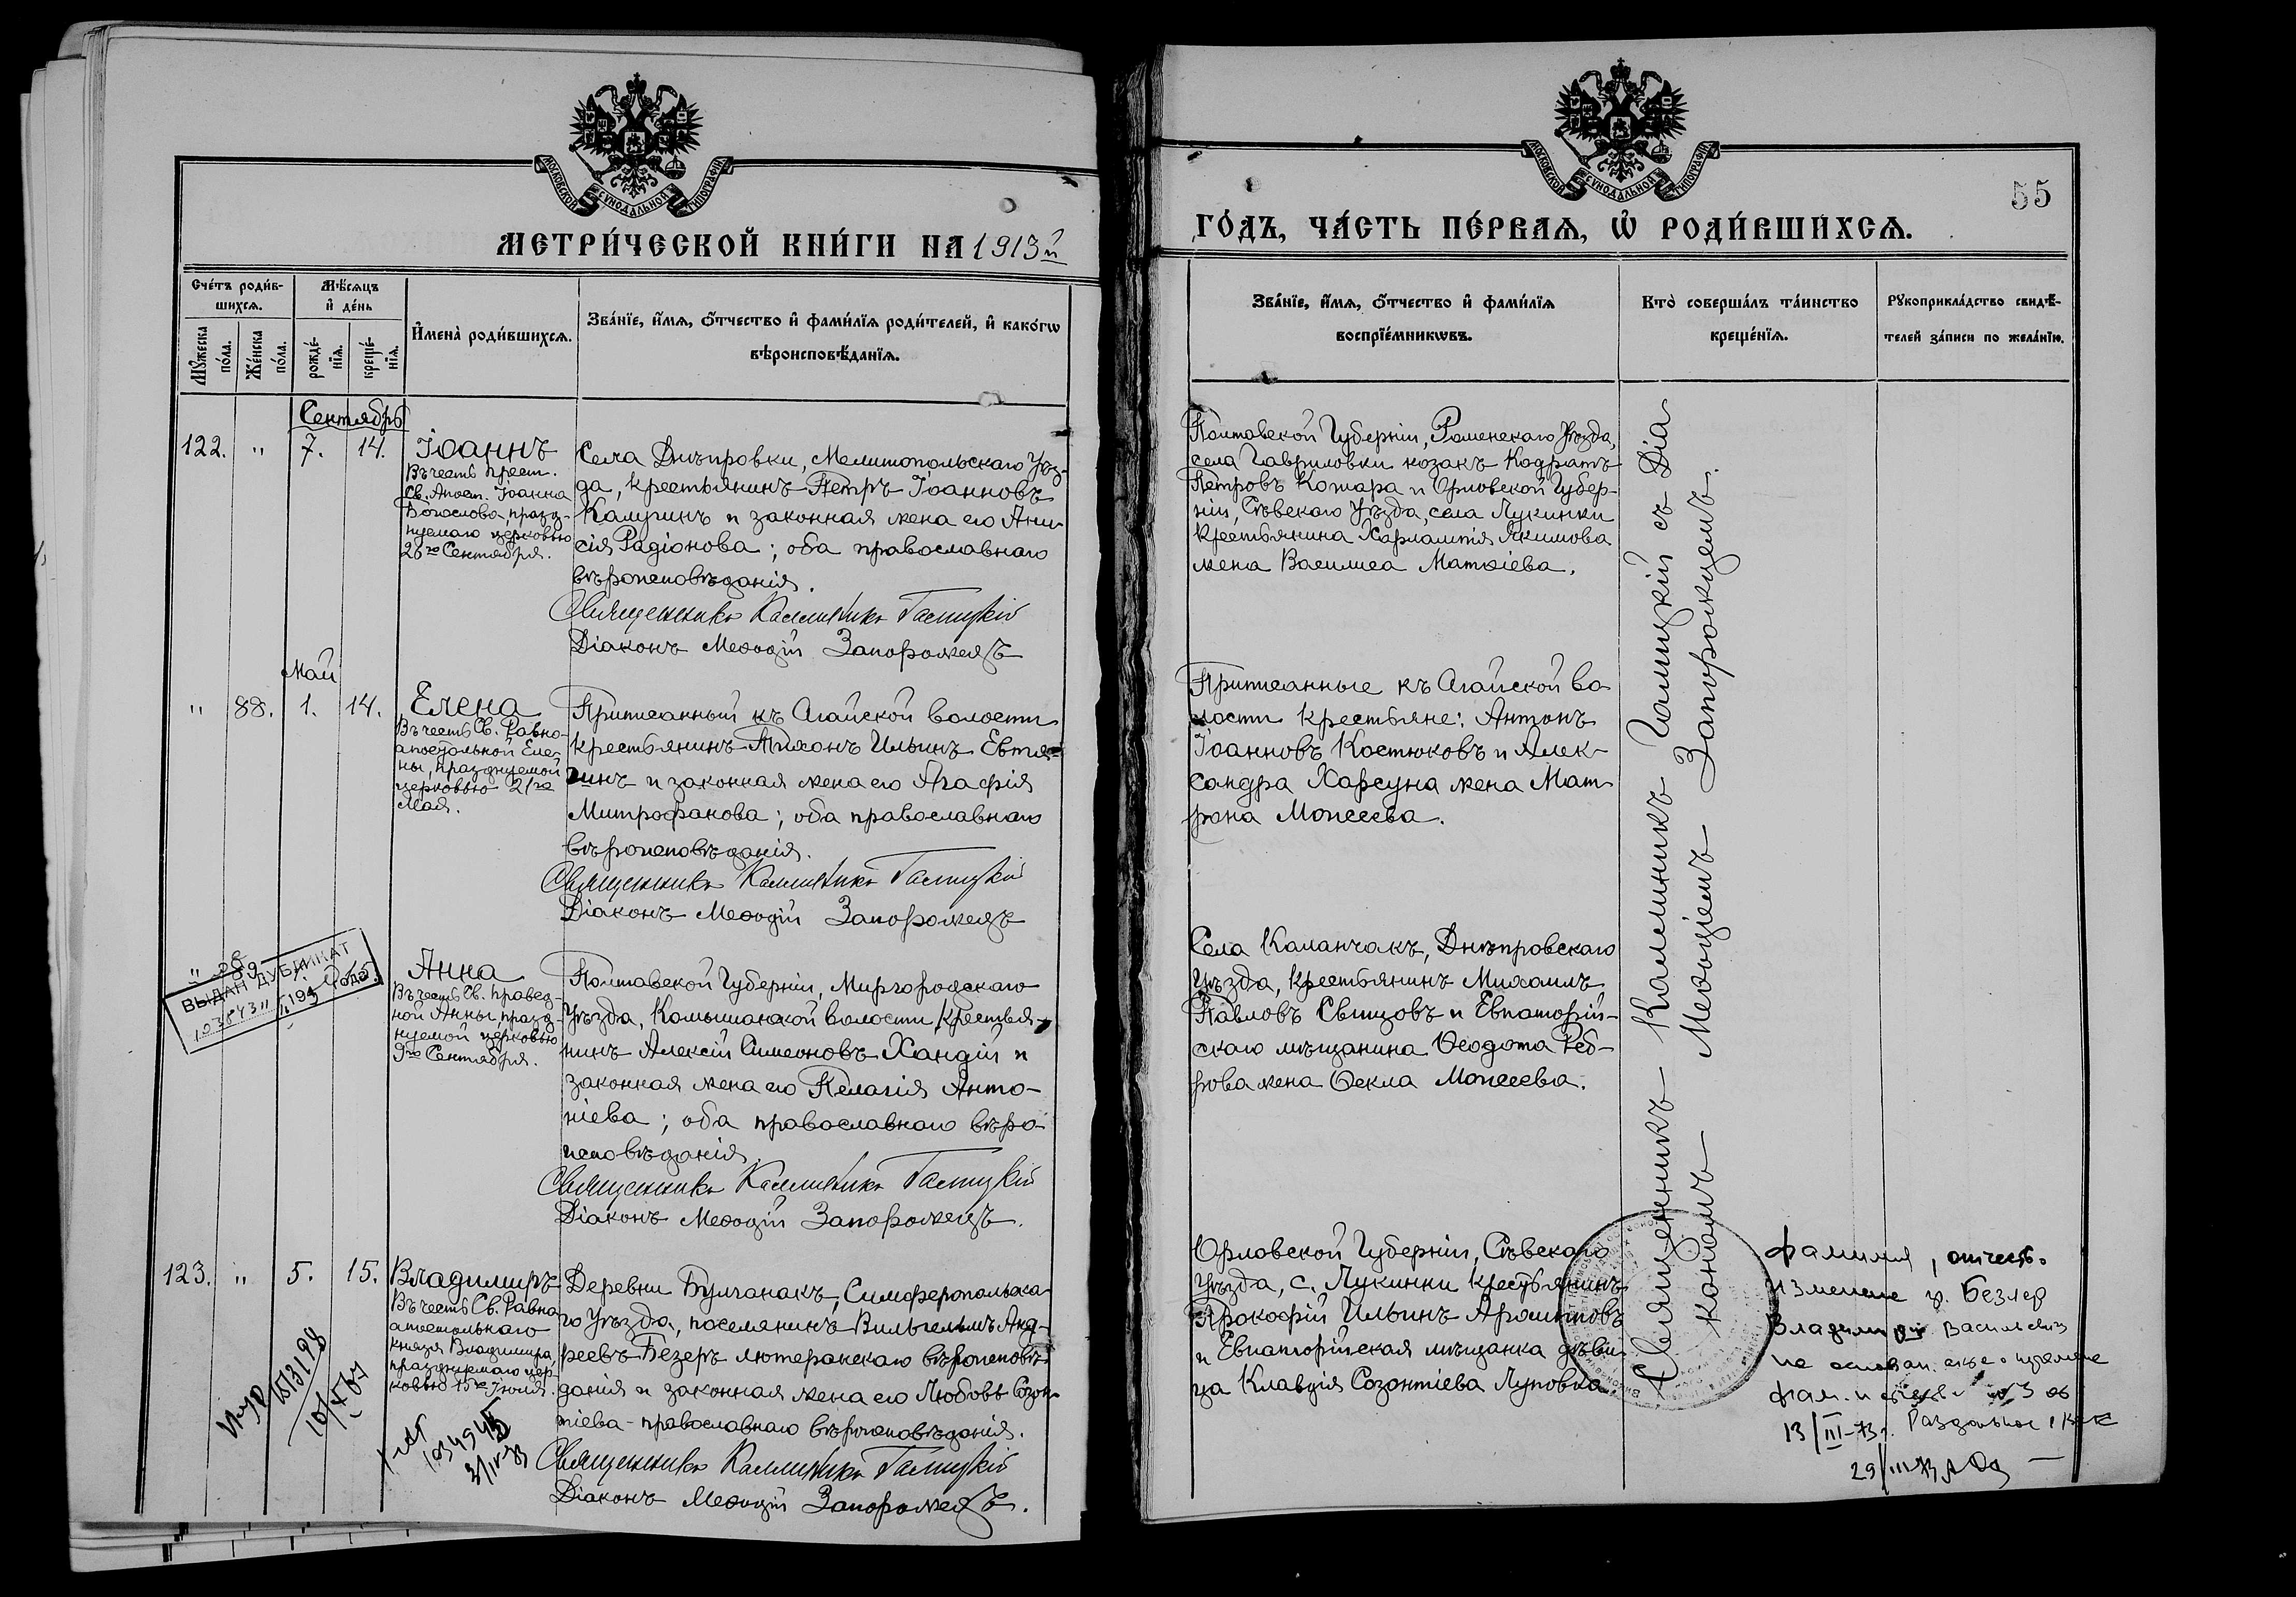 МОСКОВСКОЙ СѴНОДАЛЬНОЙ ТИПОГРАФІИ
МЕТРИ́ЧЕСКОЙ КНИ́ГИ НА 1913й
Сче́тъ роди́в-
шихсѧ.
Мꙋ́жеска
по́ла.
Же́нска
по́ла.
Мѣ́сѧцъ
и҆ де́нь
рожде́-
нїѧ.
креще́-
нїѧ.
И҆мена̀ роди́вшихсѧ.
Зва́нїе, и҆́мѧ, ѻ҆́тчество и҆ фами́лїѧ роди́телей, и҆ како́гѡ
вѣроисповѣ́данїѧ.
Сентябрь
122. " 7. 14.
Іоаннъ
Въ честь
Св. Апост. Іоанна
Богослова, празд-
нуемаго церковью
26го Сентября.
Села Днѣпровки, Мелитопольскаго Уѣз-
да, крестьянинъ Петръ Іоанновъ
Калугинъ и законная жена его Ани-
сія Радіонова; оба православнаго
вѣроисповѣданія.
Священникъ Каллиникъ Галицкій
Діаконъ Меѳодій Запорожецъ
Май
" 88. 1. 14.
Елена
Въ честь Св. Равно-
апостольной Еле-
ны, празднуемой
церковью 21го
Мая.
Приписанный къ Агайской волости
крестьянинъ Тихонъ Ильинъ
и законная жена его Агафія
Митрофанова; оба православнаго
вѣроисповѣданія.
Священникъ Каллиникъ Галицкій
Діаконъ Меѳодій Запорожецъ
" 89
ВЫДАН ДУБЛИКАТ
194 года.
Анна
Въ честь Св. правед-
ной Анны, празд-
нуемой церковью
9го Сентября.
Полтавской Губерніи, Миргородскаго
Уѣзда, Комышанской волости крестья-
нинъ Алексій Симеоновъ Хандій и
законная жена его Пелагія Анто-
ніева; оба православнаго вѣро-
исповѣданія.
Священникъ Каллиникъ Галицкій
Діаконъ Меѳодій Запорожецъ.
123. " 5. 15.
Владимиръ
Въ честь Св. Равно
апостольнаго
князя Владимира,
празднуемаго цер-
ковью 15го Іюля.
Деревни Булганакъ, Симферопольска-
го Уѣзда, поселянинъ Вильгельмъ Анд-
реевъ Безеръ лютеранскаго вѣроисповѣ-
данія и законная жена его Любовь Созон-
тіева - православнаго вѣроисповѣданія.
Священникъ Каллиникъ Галицкій
Діаконъ Меѳодій Запорожецъ.
МОСКОВСКОЙ СѴНОДАЛЬНОЙ ТИПОГРАФІИ
55
ГО́ДЪ, ЧА́СТЬ ПЕ́РВАѦ, Ѡ҆ РОДИ́ВШИХСѦ.
Зва́нїе, и҆́мѧ, ѻ҆́тчество и҆ фами́лїѧ
воспрїе́мникѡвъ.
Кто̀ соверша́лъ та́инство
креще́нїѧ.
Рꙋкоприкла́дство свидѣ́-
телей за́писи по жела́нїю.
Полтавской Губерніи, Роменскаго Уѣзда,
села Гавриловки козакъ Кодратъ
Петровъ Котара и Орловской Губер-
ніи, Сѣвскаго Уѣзда, села Лукинки
Крестьянина Харлампія Якимова
жена Василиса Матвіева.
Приписанные къ Агайской во
лости крестьяне: Антонъ
Іоанновъ Костюковъ и Алек-
сандра Харсуна жена Мат-
рона Моисеева.
Села Каланчакъ, Днѣпровскаго
Уѣзда, крестьянинъ Михаилъ
Павловъ Свитовъ и Евпаторій-
скаго мѣщанина Ѳеодота Реб-
рова жена Ѳекла Моисеева.
Орловской Губерніи, Сѣвскаго
Уѣзда, с. Лукинки крестьянинъ
Прокофій Ильинъ
и Евпаторійская мѣщанка дѣви-
ца Клавдія Созонтіева Луповка
Священникъ Каллиникъ Галицкій съ Діа
кономъ Меѳодіемъ Запорожцемъ.
Фамилия, отчеств.
гр. Безлер
Владимир Васильевич
13/III-73г.